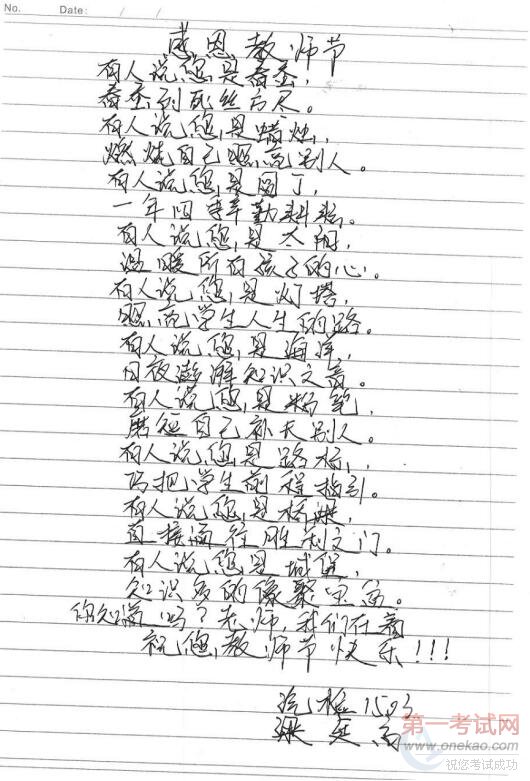 No.
Date: / /
感恩教师节
有人说,您是春蚕,
春蚕到死丝方尽。
有人说,您,是蜡烛,
燃烧自己照亮别人。
有人说,您,是园丁,
一年四季辛勤耕耘。
有人说,您,是太阳,
温暖所有孩子的心。
有人说,您,是灯塔,
照亮学生人生的路。
有人说,您,是海洋,
日夜澎湃知识之音。
有人说,您,是粉笔,
磨短自己补长别人。
有人说,您,是路标,
只把学生前程指引。
有人说,您,是桥梁,
直接通往胜利之门。
有人说,您,是城堡,
知识多的像聚宝盆。
你知道吗?老师,我们在
祝您,教师节快乐!!!
汽检1503
第一考试网
www.onekao.com
祝您考试成功